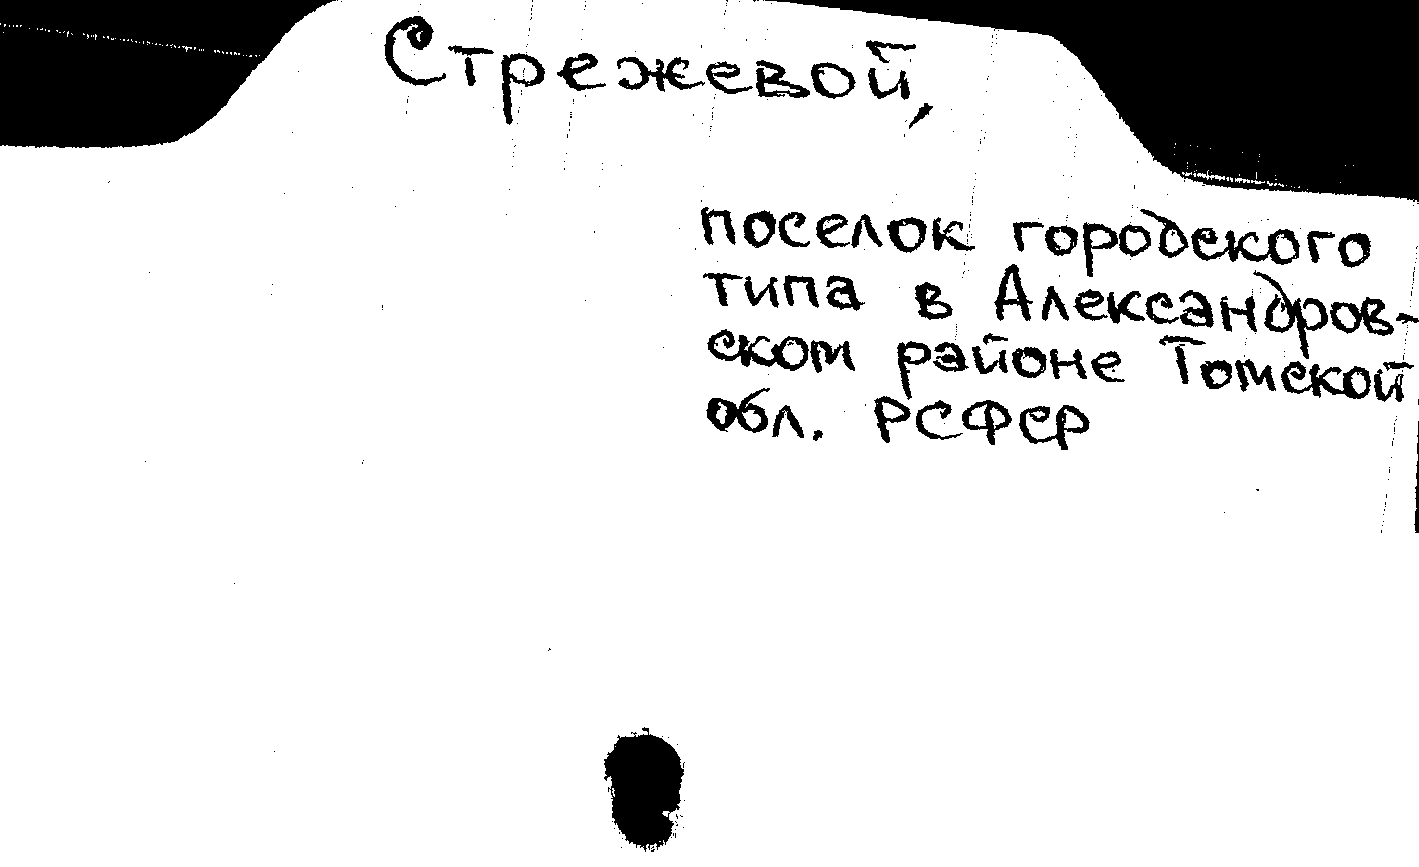 Стрежевой,
поселок городского
типа в Александров-
ском районе Томской
обл. РСФСР